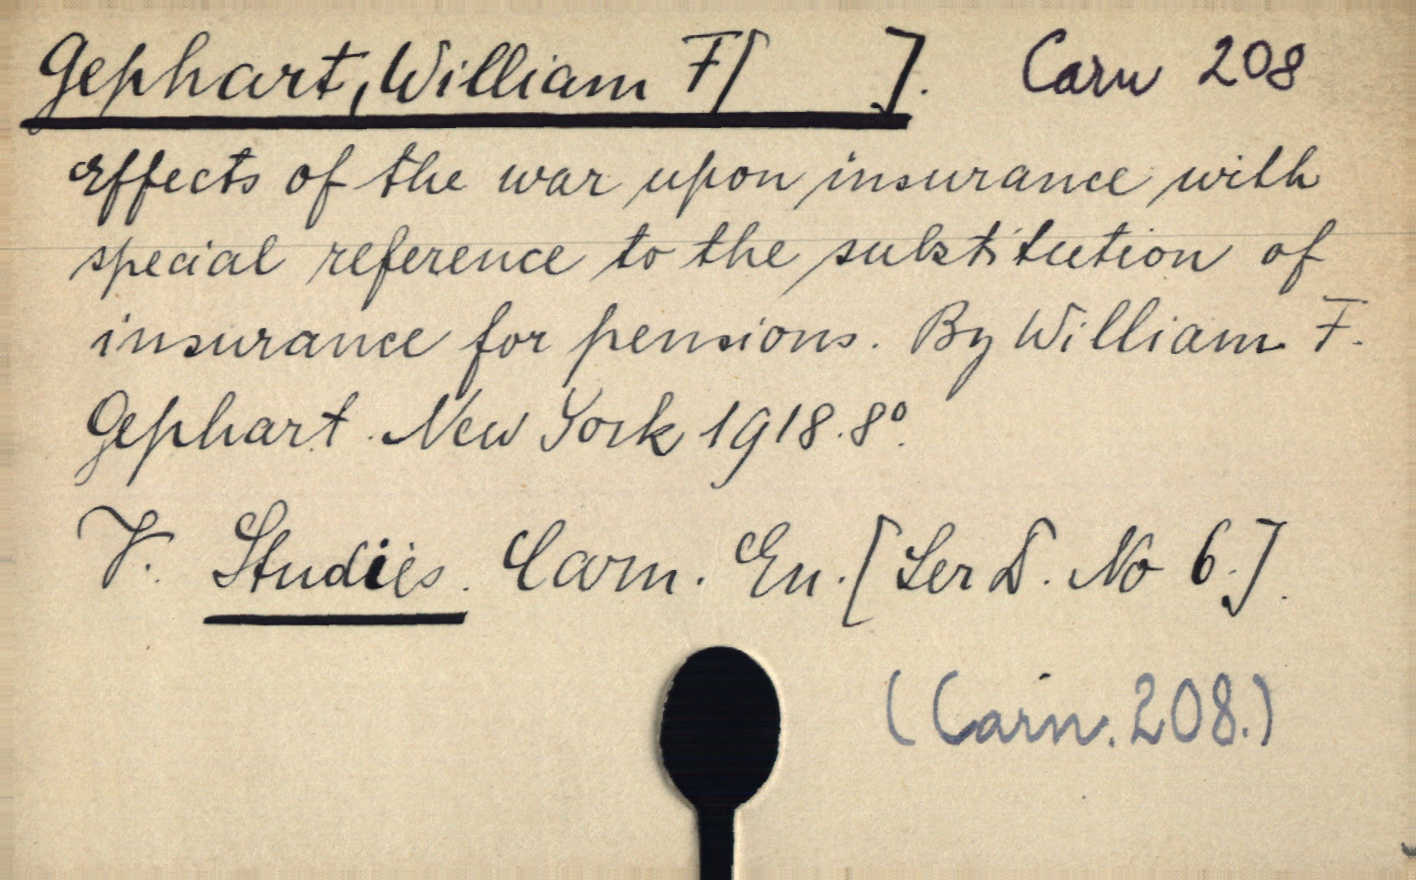 Gephart, William F[ ]. Carn 208
Effects of the war upon insurance with
special reference to the substitution of
insurance for pensions. By William F.
Gephart. New York 1918. 8°.
V. Studies. Carn. En. [Ser D. No 6.].
(Carn. 208.)